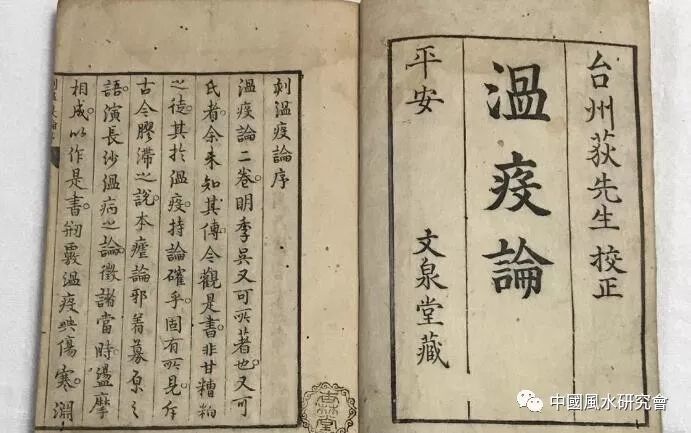 台州荻先生 校正
溫疫論
平安 文泉堂藏
刻溫疫論序
溫疫論二卷明季吳又可所著也。又可
氏者余未知其傳今觀是書。非甘糟粕
之徒其於溫疫持論確乎固有所見斥
古今膠滯之說本瘧論邪著募原之
語。演長沙溫病之論。徵諸當時盪摩
相成以作是書。剏覈溫疫與傷寒。淵
中國風水研究會